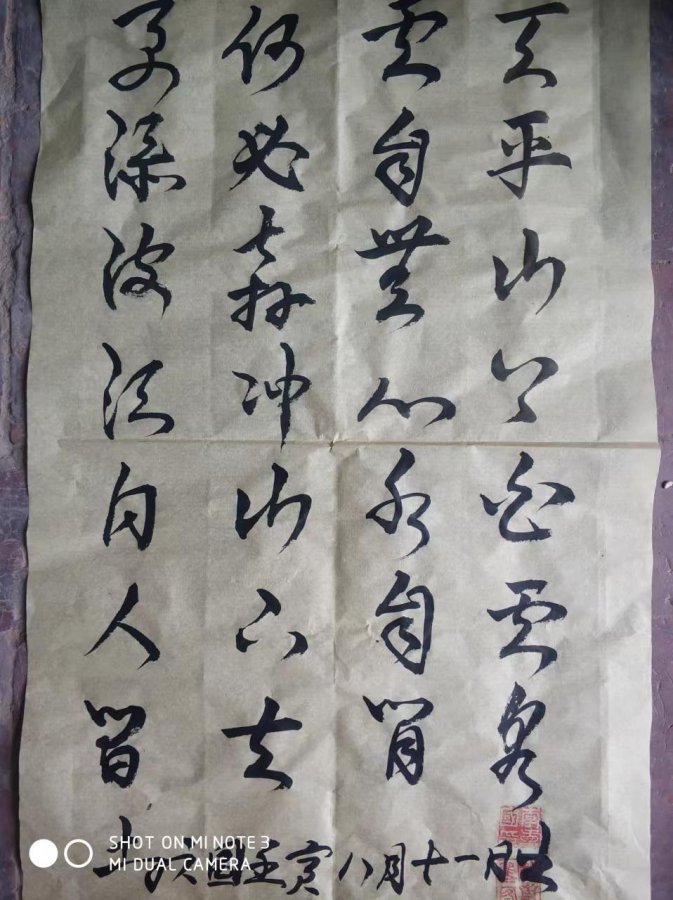 天平山上白雲泉
雲自無心水自閒
何必奔冲山下去
更添波浪向人間
壬寅八月十一
SHOT ON MI NOTE 3
MI DUAL CAMERA